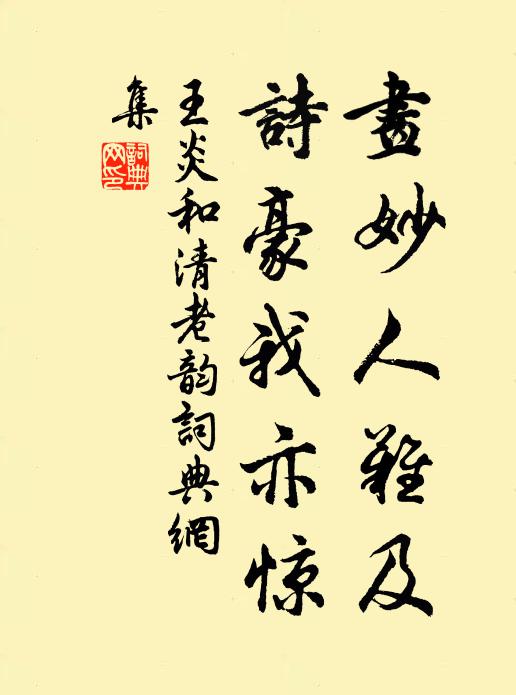 畫妙人難及
詩豪我亦惊
王炎和清老韵詞典網
集
詞典網印